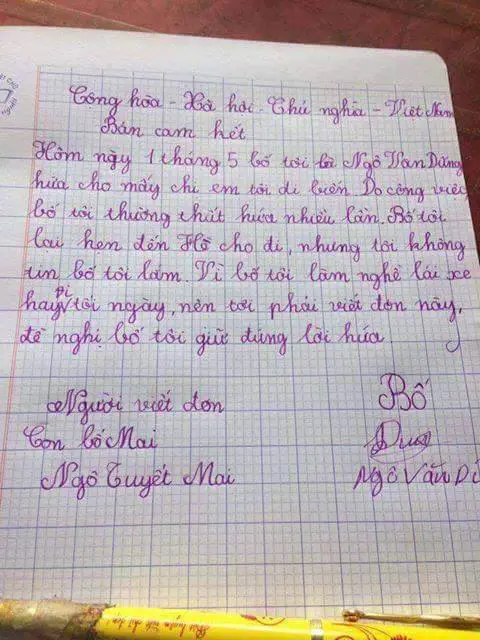 Công hòa - Xã hôi - Chủ nghĩa - Việt Nam
Bản cam hết
Hôm nậy 1 tháng 5 bố tôi là Ngô Văn Dũng
hứa cho mấy chi em tôi di biển Do công việc
bố tôi thường thất hứa nhiều lần. Bố tôi
lại hen đến Hồ cho di, nhưng tôi không
tin bố tôi lắm. Vì bố tôi làm nghề lái xe
hay đi tối ngày, nên tôi phải viết đơn này,
đề nghị bố tôi giữ đúng lời hứa
Người viết đơn
Con bố Mai
Ngô Tuyết Mai
Bố
Ngô Văn Dũ